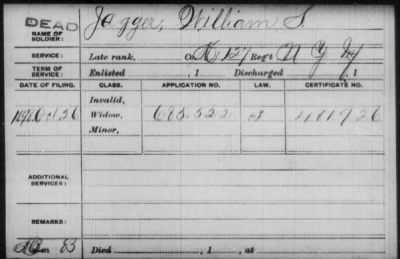 DEAD
NAME OF SOLDIER: Jagger, William S.
SERVICE: Late rank, Co. K, 127 Reg't N. Y. Inf
TERM OF SERVICE: Enlisted , 1 Discharged , 1
DATE OF FILING. CLASS. APPLICATION NO. LAW. CERTIFICATE NO.
Invalid,
Oct 26 Widow,
Minor,
ADDITIONAL SERVICES:
REMARKS:
Died , 1 , at